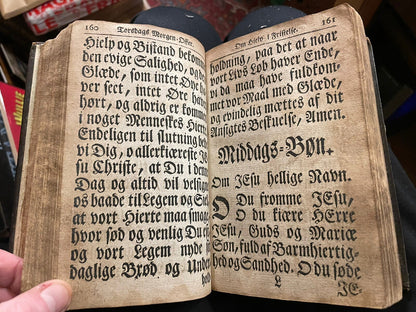 160 Torsdags Morgen-Offer.
Hielp og Bistand bekomme
den evige Salighed, og de
Glæde, som intet Øye ha-
ver seet, intet Øre haver
hørt, og aldrig er kommen
i noget Menneskes Hierte.
Endeligen til slutning bede
vi Dig, o allerkiæreste JE-
su Christe, at Du i denne
Dag og altid vil velsigne
os baade til Legem og Siel,
at vort Hierte maa smage,
hvor sød og venlig Du er,
og vort Legem nyde sit
daglige Brød og Under-
Om Hielp i Fristelse. 161
holdning, paa det at naar
vort Livs Løb haver Ende,
vi da maa have fuldkom-
met vor Maal med Glæde,
og evindelig mættes af dit
Ansigtes Beskuelse, Amen.
Middags-Bøn.
Om JEsu hellige Navn.
O Du fromme JEsu,
O du kiære HErre
JEsu, Guds og Mariæ
Søn, fuld af Barmhiertig-
hed og Sandhed. O du søde
L JE-